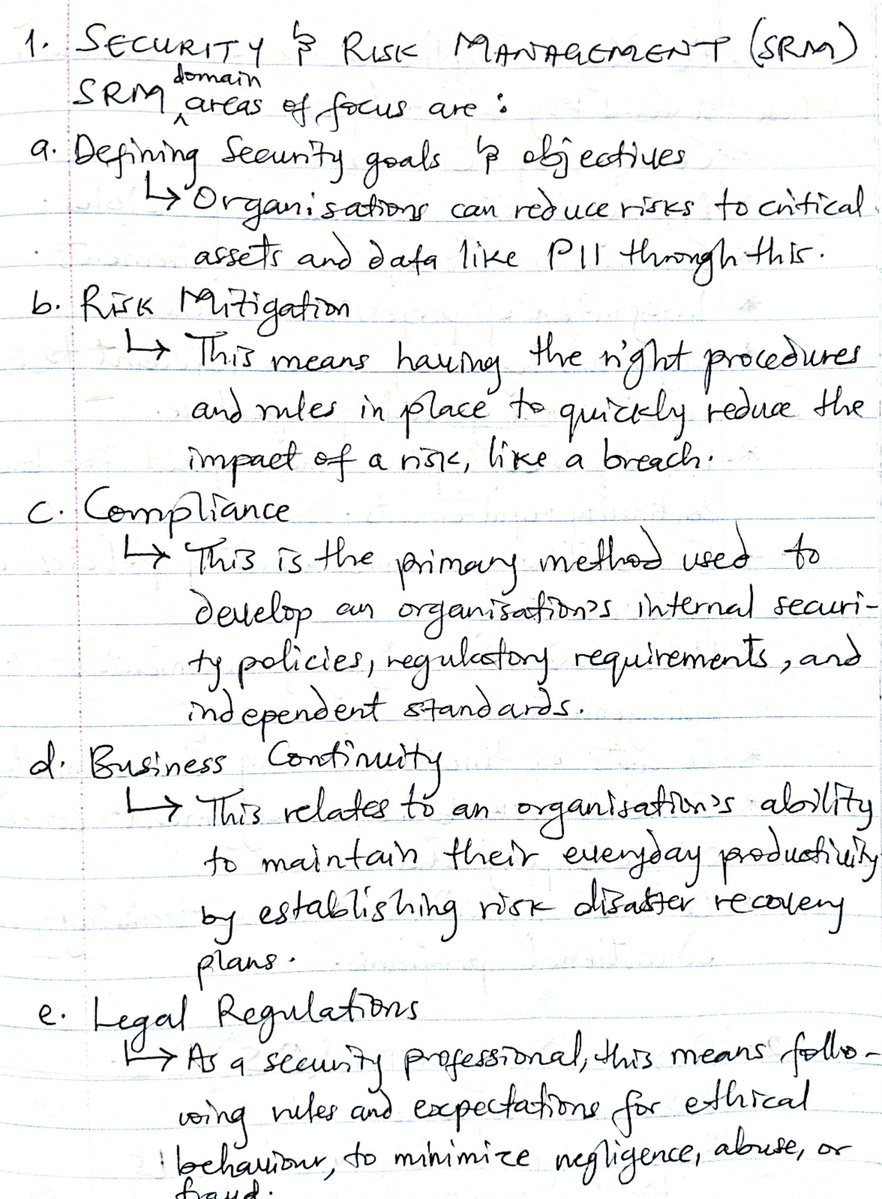 1. SECURITY & RISK MANAGEMENT (SRM)
SRM domain areas of focus are :
a. Defining Security goals & objectives
↳ Organisations can reduce risks to critical
assets and data like PII through this.
b. Risk Mitigation
↳ This means having the right procedures
and rules in place to quickly reduce the
impact of a risk, like a breach.
c. Compliance
↳ This is the primary method used to
develop an organisation's internal securi-
ty policies, regulatory requirements, and
independent standards.
d. Business Continuity
↳ This relates to an organisation's ability
to maintain their everyday productivity
by establishing risk disaster recovery
plans.
e. Legal Regulations
↳ As a security professional, this means follo-
wing rules and expectations for ethical
behaviour, to minimize negligence, abuse, or
fraud.